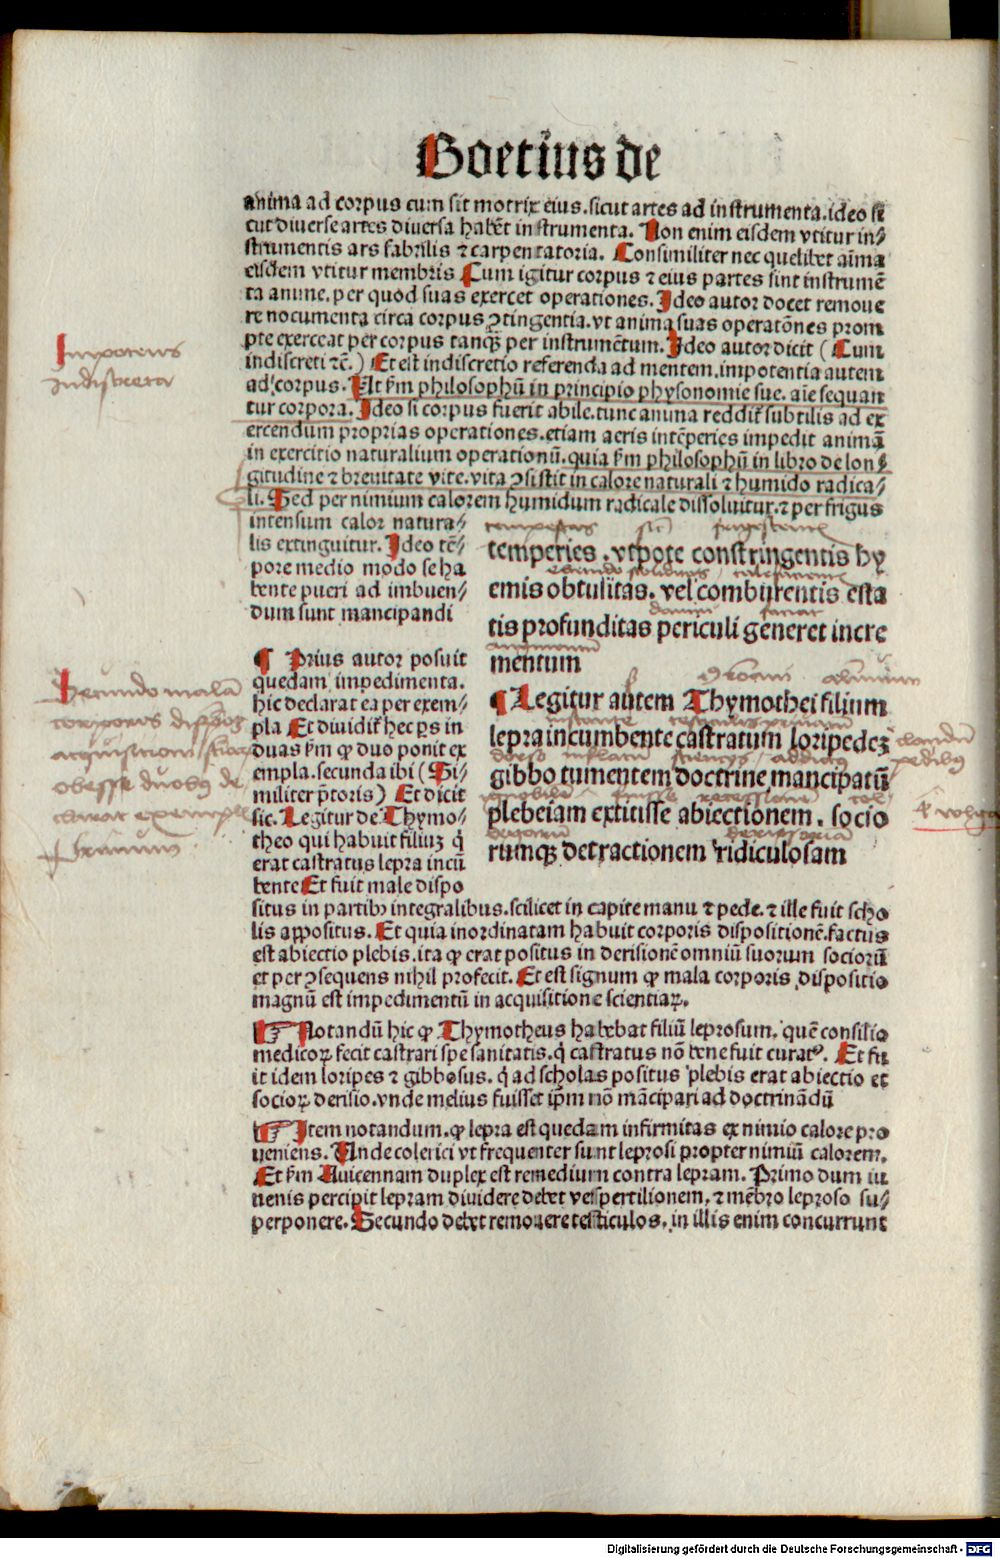 Boetius de
anima ad corpus cum sit motrix eius. sicut artes ad instrumenta. ideo si
cut diuerse artes diuersa habēt instrumenta. Non enim eisdem vtitur in⸗
strumentis ars fabrilis ⁊ carpentatoria. Consimiliter nec quelibet aīma
eisdem vtitur membris Cum igitur corpus ⁊ eius partes sint instrumē
ta anime. per quod suas exercet operationes. Ideo autor docet remoue
re nocumenta circa corpus ꝯtingentia. vt anima suas operatōnes prom
pte exerceat per corpus tanqꝫ per instrumētum. Ideo autor dicit (Cum
indiscreti ⁊c̄.) Et est indiscretio referenda ad mentem. impotentia autem
ad corpus. Ut ẜm philosophū in principio physonomie sue. aīe sequan
tur corpora. Ideo si corpus fuerit abile. tunc anima reddit̉ subtilis ad ex
ercendum proprias operationes. etiam aeris intēperies impedit animā
in exercitio naturalium operationū. quia ẜm philosophū in libro de lon⸗
gitudine ⁊ breuitate vite. vita ꝯsistit in calore naturali ⁊ humido radica⸗
li. Sed per nimium calorem humidum radicale dissoluitur. ⁊ per frigus
intensum calor natura⸗
lis extinguitur. Ideo tē⸗
pore medio modo se ha
bente pueri ad imbuen⸗
dum sunt mancipandi
temperies. vtpote constringentis hy
emis obtulitas. vel comburentis esta
tis profunditas periculi generet incre
mentum
¶ Prius autor posuit
quedam impedimenta.
hic declarat ea per exem⸗
pla Et diuidit̉ hec ꝑs in
duas ẜm ꝙ duo ponit ex
empla. secunda ibi (Si⸗
militer p̄toris) Et dicit
sic. Legitur de Thymo⸗
theo qui habuit filiuꝫ q̇
erat castratus lepra incū
bente Et fuit male dispo
¶ Legitur autem Thymothei filium
lepra incumbente castratum loripedeꝫ
gibbo tumentem doctrine mancipatū
plebeiam extitisse abiectionem. socio
rumqꝫ detractionem ridiculosam
situs in partibꝫ integralibus. scilicet in capite manu ⁊ pede. ⁊ ille fuit scho
lis appositus. Et quia inordinatam habuit corporis dispositionē. factus
est abiectio plebis. ita ꝙ erat positus in derisionē omniū suorum sociorū
et per ꝯsequens nihil profecit. Et est signum ꝙ mala corporis dispositio
magnū est impedimentū in acquisitione scientiaꝝ.
☞ Notandū hic ꝙ Thymotheus habebat filiū leprosum. quē consilio
medicoꝝ fecit castrari spe sanitatis. q̇ castratus nō bene fuit curatꝰ. Et fu
it idem loripes ⁊ gibbosus. q̇ ad scholas positus plebis erat abiectio et
socioꝝ derisio. vnde melius fuisset ip̄m nō mācipari ad doctrinādū
☞ Item notandum. ꝙ lepra est quedam infirmitas ex nimio calore pro
ueniens. Unde colerici vt frequenter sunt leprosi propter nimiū calorem.
Et ẜm Auicennam duplex est remedium contra lepram. Primo dum iu
uenis percipit lepram diuidere debet vespertilionem. ⁊ mēbro leproso su⸗
perponere. Secundo debet remouere testiculos. in illis enim concurrunt
Impotens
Indiscreta
Secundo malā
corporis
acquisitioni
obesse duobus de
clarat
primum
claudū
pedibus
Digitalisierung gefördert durch die Deutsche Forschungsgemeinschaft - DFG